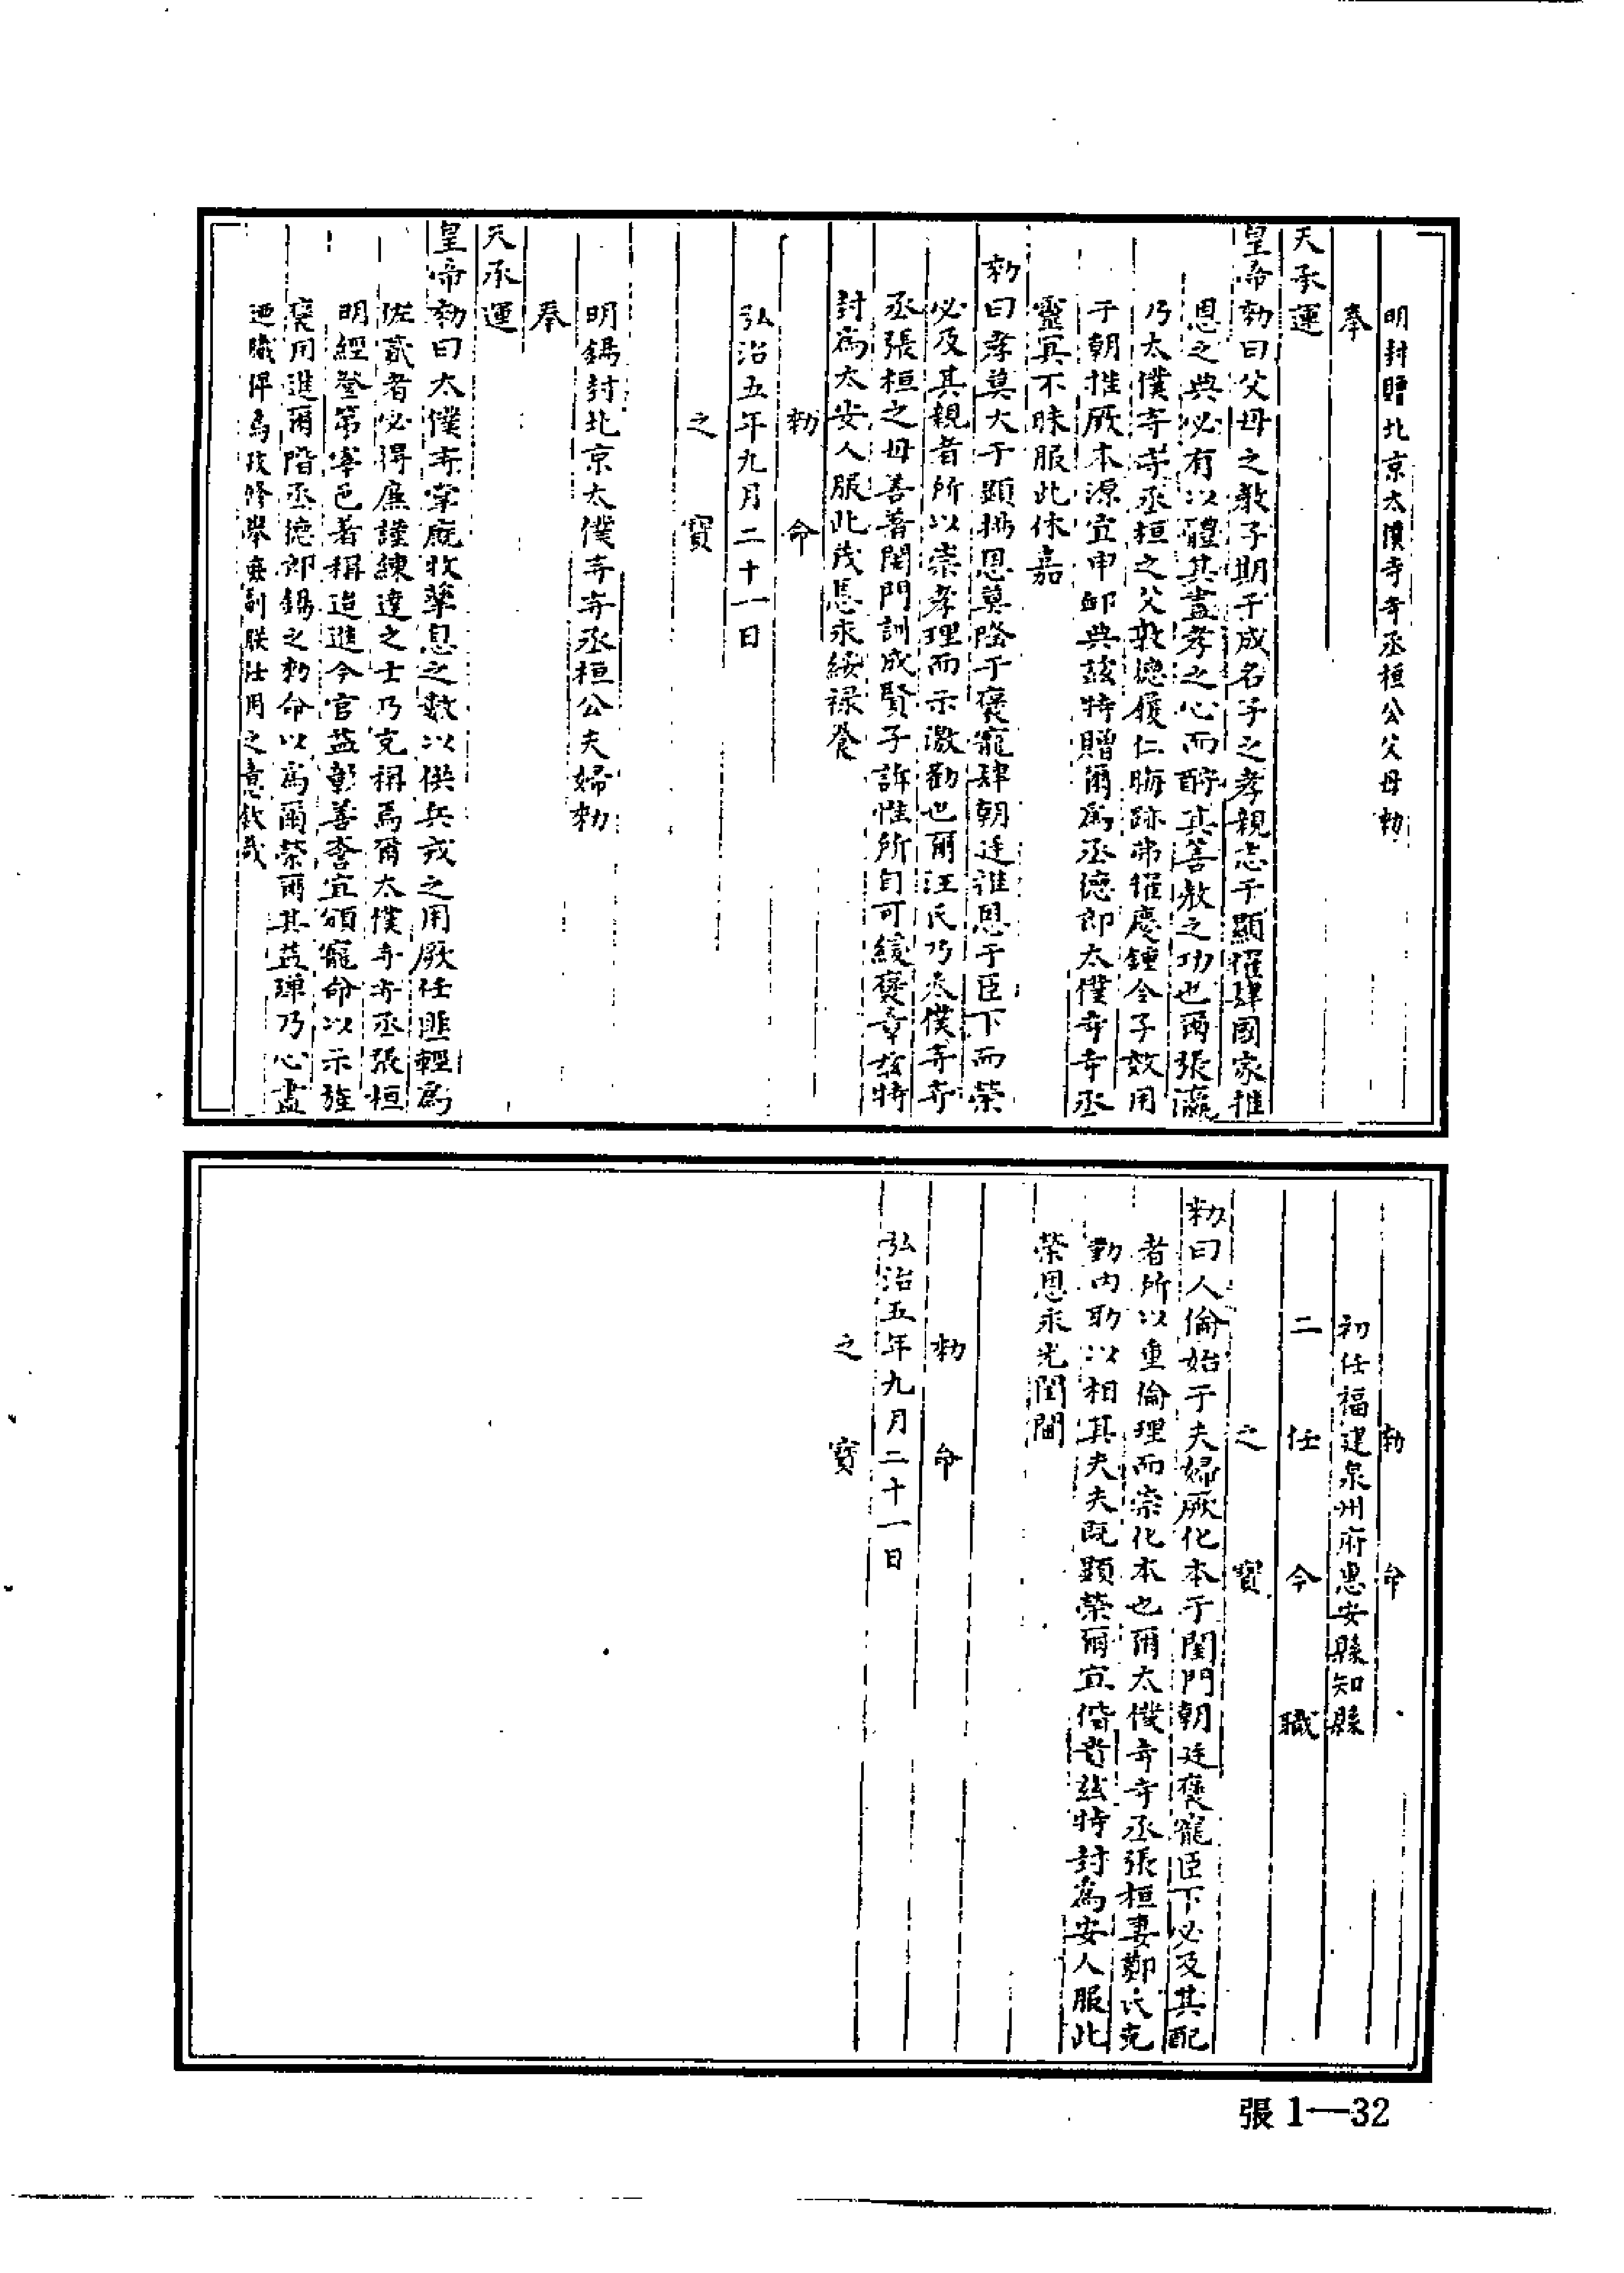 明封贈北京太僕寺寺丞桓公父母勅
奉
天承運
皇帝勅曰父母之教子期于成名子之孝親志于顯揚肆國家推
恩之典必有以體其盡孝之心而酧其善教之功也爾張瀛
乃太僕寺寺丞桓之父敦德履仁晦跡弗耀慶鍾令子效用
于朝推厥本源宜申邺典茲特贈爾為丞德郎太僕寺寺丞
靈冥不昧服此休嘉
勅曰孝莫大于顯揚恩莫隆于褒寵肆朝廷推恩于臣下而榮
必及其親者所以崇孝理而示激勸也爾汪氏乃太僕寺寺
丞張桓之母善著閨門訓成賢子訴惟所自可緩褒章茲特
封為太安人服此茂恩永綏祿養
勅命
弘治五年九月二十一日
之寶
明錫封北京太僕寺寺丞桓公夫婦勅
奉
天承運
皇帝勅曰太僕寺掌廐牧孳息之數以供兵戎之用厥任匪輕為
佐貳者必得廉謹練達之士乃克稱焉爾太僕寺寺丞張桓
明經登第宰邑著稱造進今官益彰善譽宜頒寵命以示旌
褒用進爾階丞德郎錫之勅命以為爾榮爾其益殫乃心盡
迺職俾馬政修舉無副朕仕用之意欽哉
勅命
初任福建泉州府惠安縣知縣
二任今職
之寶
勅曰人倫始于夫婦厥化本于閨門朝廷褒寵臣下必及其配
者所以重倫理而崇化本也爾太僕寺寺丞張桓妻鄭氏克
勤內助以相其夫夫既顯榮爾宜偕貴茲特封為安人服此
榮恩永光閨閫
勅命
弘治五年九月二十一日
之寶
張1—32